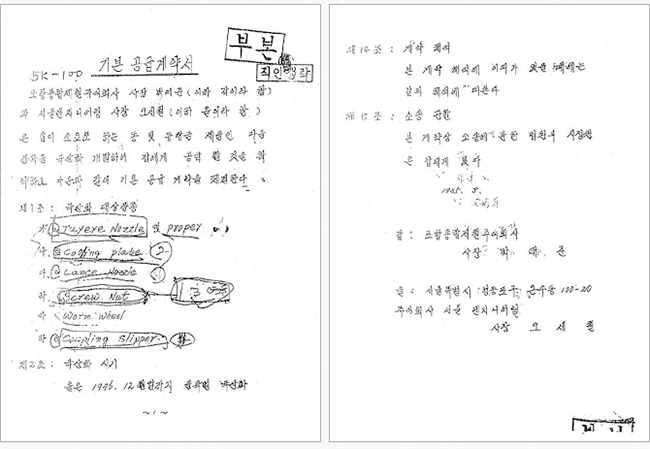 부본
직인생략
SK-100 기본 공급계약서
포항종합제철주식회사 사장 박태준(이하 갑이라 함)
과 서울엔지니어링 사장 오세철(이하 을이라 함)
은 갑이 소요로 하는 동 및 동합금 제품인 다음
품목을 국산화 개발하여 갑에게 공급 할 것을
다음과 같이 기본 공급 계약을 체결한다
제1조 : 국산화 대상품목
가 Tuyere Nozzle 및 proper
나 Cooling plate 2
다 Lance Nozzle 1
라 Screw Nut
마 Worm Wheel
바 Coupling Slipper
제2조 : 국산화 시기
을은 12월말까지 국산화
~1~
제14조 : 계약 해석
본 계약 해석에 이의가 있을 때에는
갑의 해석에 따른다
제15조 : 소송 관할
본 계약상 소송에 관한 법원의
은 갑에게 있다
갑 : 포항종합제철주식회사
사장 박태준
을 : 서울특별시 영등포구 문수동 100-20
주식회사 서울 엔지니어링
사장 오세철